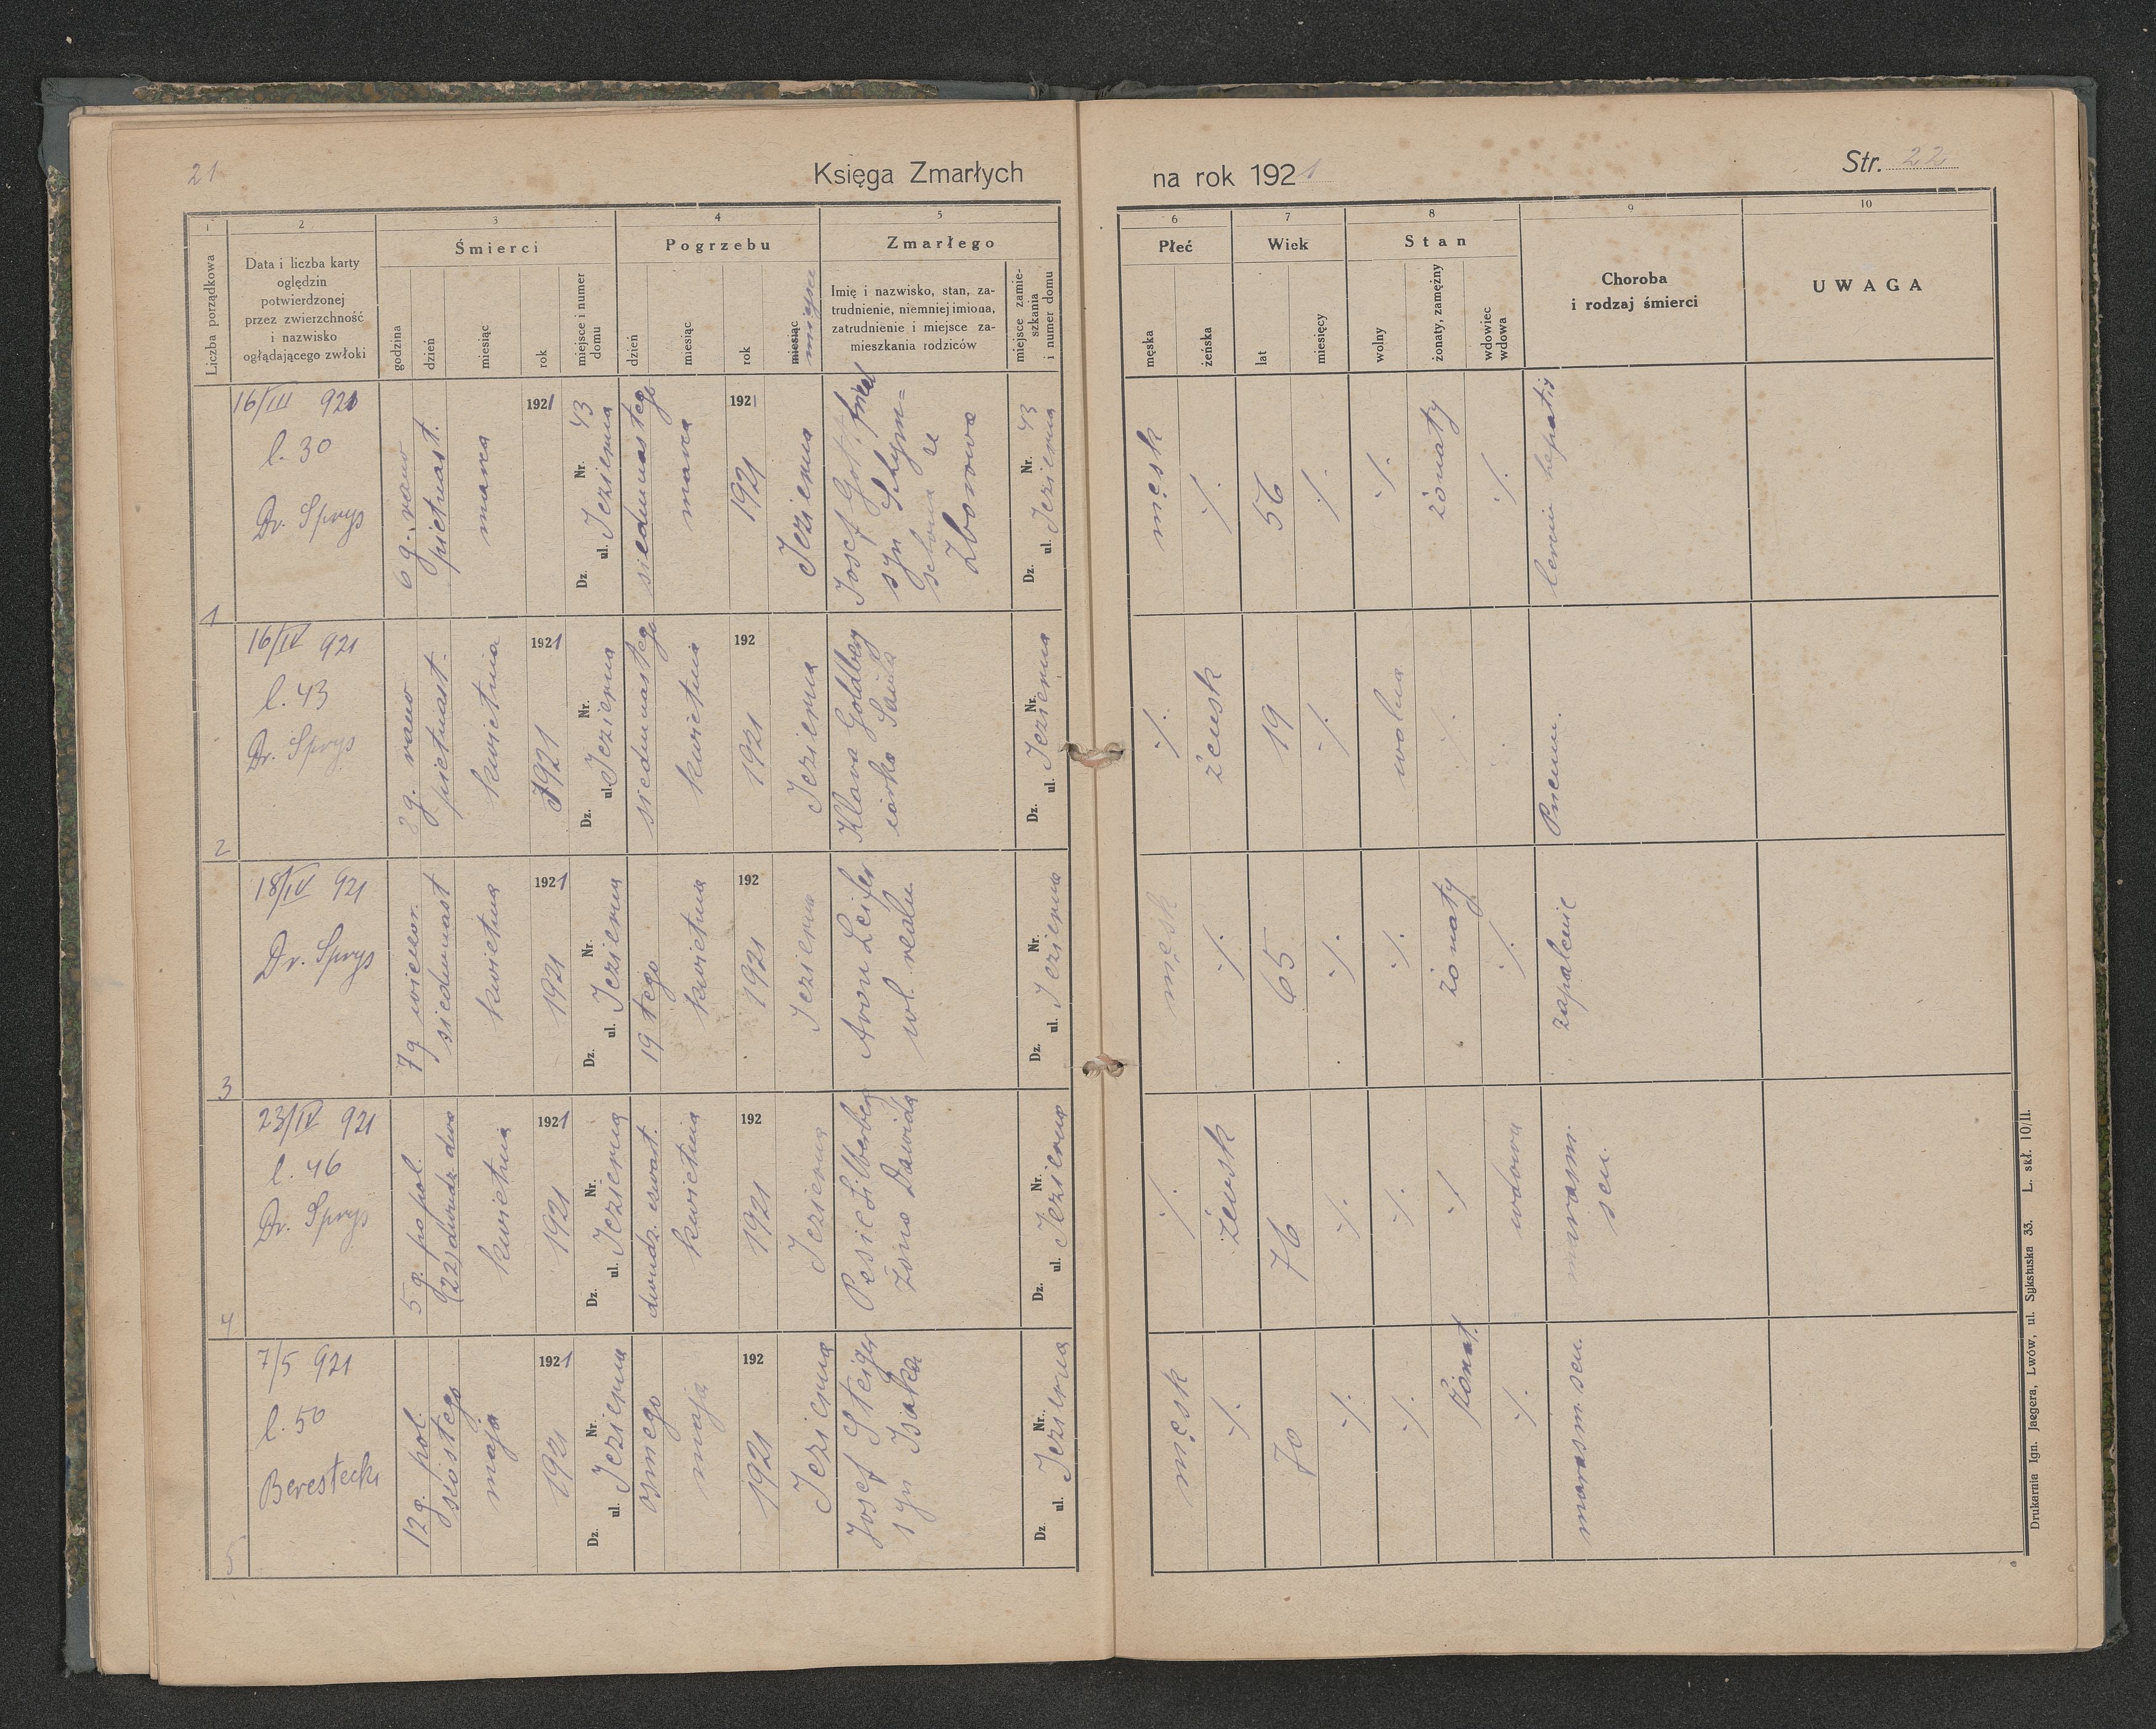 21
Księga Zmarłych
na rok 1921
Str. 22
1
2
3
4
5
6
7
8
9
10
Liczba porządkowa
Data i liczba karty
oględzin
potwierdzonej
przez zwierzchność
i nazwisko
oglądającego zwłoki
Śmierci
godzina
dzień
miesiąc
rok
miejsce i numer
domu
Pogrzebu
dzień
miesiąc
rok
miesiąc
miejsce
Zmarłego
Imię i nazwisko, stan, za-
trudnienie, niemniej imiona,
zatrudnienie i miejsce za-
mieszkania rodziców
miejsce zamie-
szkania
i numer domu
Płeć
męska
żeńska
Wiek
lat
miesięcy
Stan
wolny
żonaty, zamężny
wdowiec
wdowa
Choroba
i rodzaj śmierci
UWAGA
1
16/III 921
l. 30
Dr. Sprys
6 g. rano
pietnast.
marca
1921
Dz. ul. Nr. 43
Jezierna
siedmnastego
marca
1921
1921
Jezierna
Josef
syn
ze
Zborowa
Dz. ul. Nr. 43
Jezierna
męsk
·/.
56
·/.
·/.
żonaty
·/.
hepatis
2
16/IV 921
l. 43
Dr. Sprys
8 g. rano
pietnast.
kwietnia
1921
1921
Dz. ul. Nr.
Jezierna
siedmnastego
kwietnia
192
1921
Jezierna
Klara Goldberg
córka Saula
Dz. ul. Nr.
Jezierna
·/.
żeńsk
19
·/.
wolna
·/.
Pneum.
3
18/IV 921
Dr. Sprys
7 g wieczor.
siedmnast
kwietnia
1921
1921
Dz. ul. Nr.
Jezierna
19 tego
kwietnia
192
1921
Jezierna
Aron Leifer
wł. realn.
Dz. ul. Nr.
Jezierna
męsk
·/.
65
·/.
·/.
żonaty
·/.
zapalenie
4
23/IV 921
l. 46
Dr. Sprys
5 g. po poł.
(22) dwudz. dwa
kwietnia
1921
1921
Dz. ul. Nr.
Jezierna
dwudz. czwart.
kwietnia
192
1921
Jezierna
Pesie Silberberg
żona Dawida
Dz. ul. Nr.
Jezierna
·/.
żeńsk
76
·/.
·/.
·/.
wdowa
marasm.
sen.
5
7/5 921
l. 50
Berestecki
12 g. poł.
szóstego
maja
1921
1921
Dz. ul. Nr.
Jezierna
osmego
maja
192
1921
Jezierna
Josef Steiger
syn Isaka
Dz. ul. Nr.
Jezierna
męsk
·/.
70
·/.
·/.
żonat.
·/.
marasm. sen.
Drukarnia Ign. Jaegera, Lwów, ul. Sykstuska 33. L. skł. 10/II.